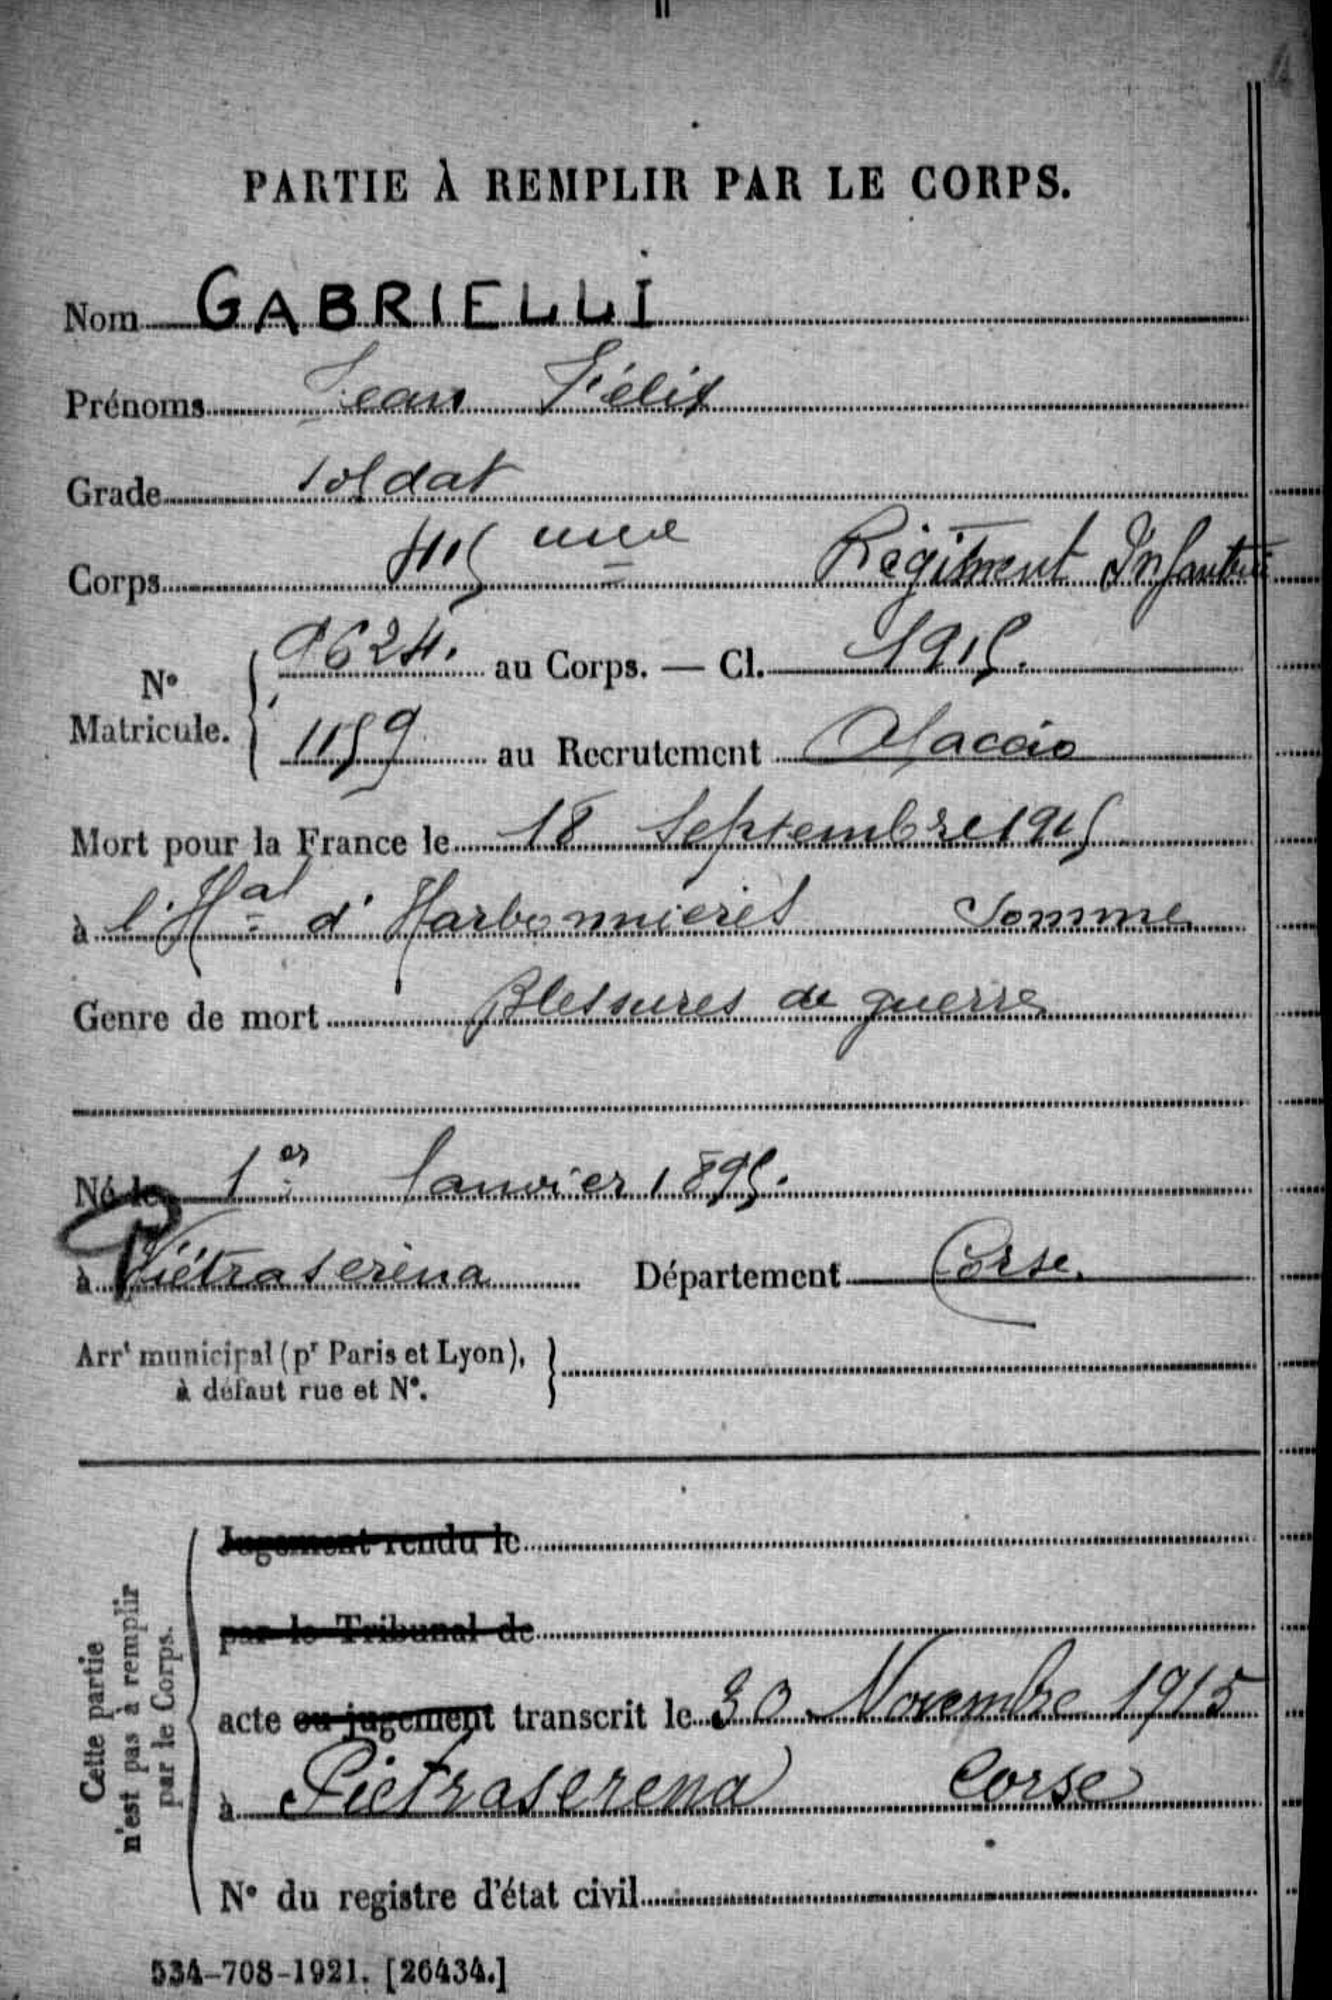 PARTIE À REMPLIR PAR LE CORPS.
Nom GABRIELLI
Prénoms Jean Félix
Grade soldat
Corps 415 eme Régiment Infanterie
N° Matricule. 9624. au Corps. — Cl. 1915.
1159 au Recrutement Ajaccio
Mort pour la France le 18 Septembre 1915
à l'Hal d'Harbonnieres Somme
Genre de mort Blessures de guerre
Né le 1er Janvier 1895.
à Piétraseréna Département Corse.
Arrt municipal (pr Paris et Lyon),
à défaut rue et N°.
Cette partie
n'est pas à remplir
par le Corps.
Jugement rendu le
par le Tribunal de
acte ou jugement transcrit le 30 Novembre 1915
à Pietraserena Corse
N° du registre d'état civil
534-708-1921. [26434.]